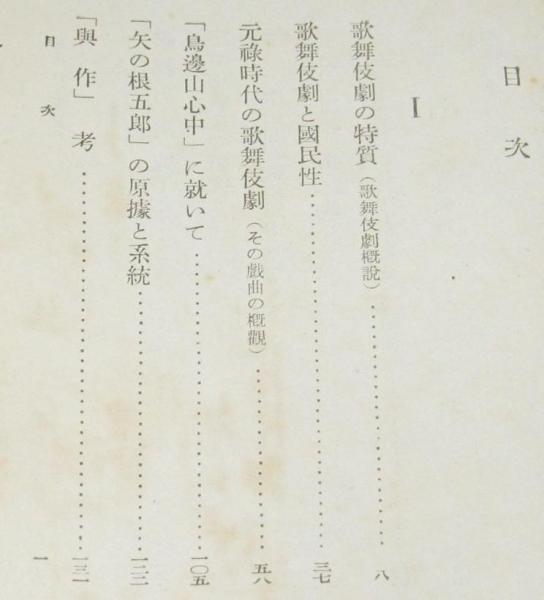 目次
I
歌舞伎劇の特質(歌舞伎劇概說)……………八
歌舞伎劇と國民性……………三七
元祿時代の歌舞伎劇(その戲曲の概觀)……………五八
「鳥邊山心中」に就いて……………一〇五
「矢の根五郎」の原據と系統……………一二二
「與作」考……………一三一
目次 一